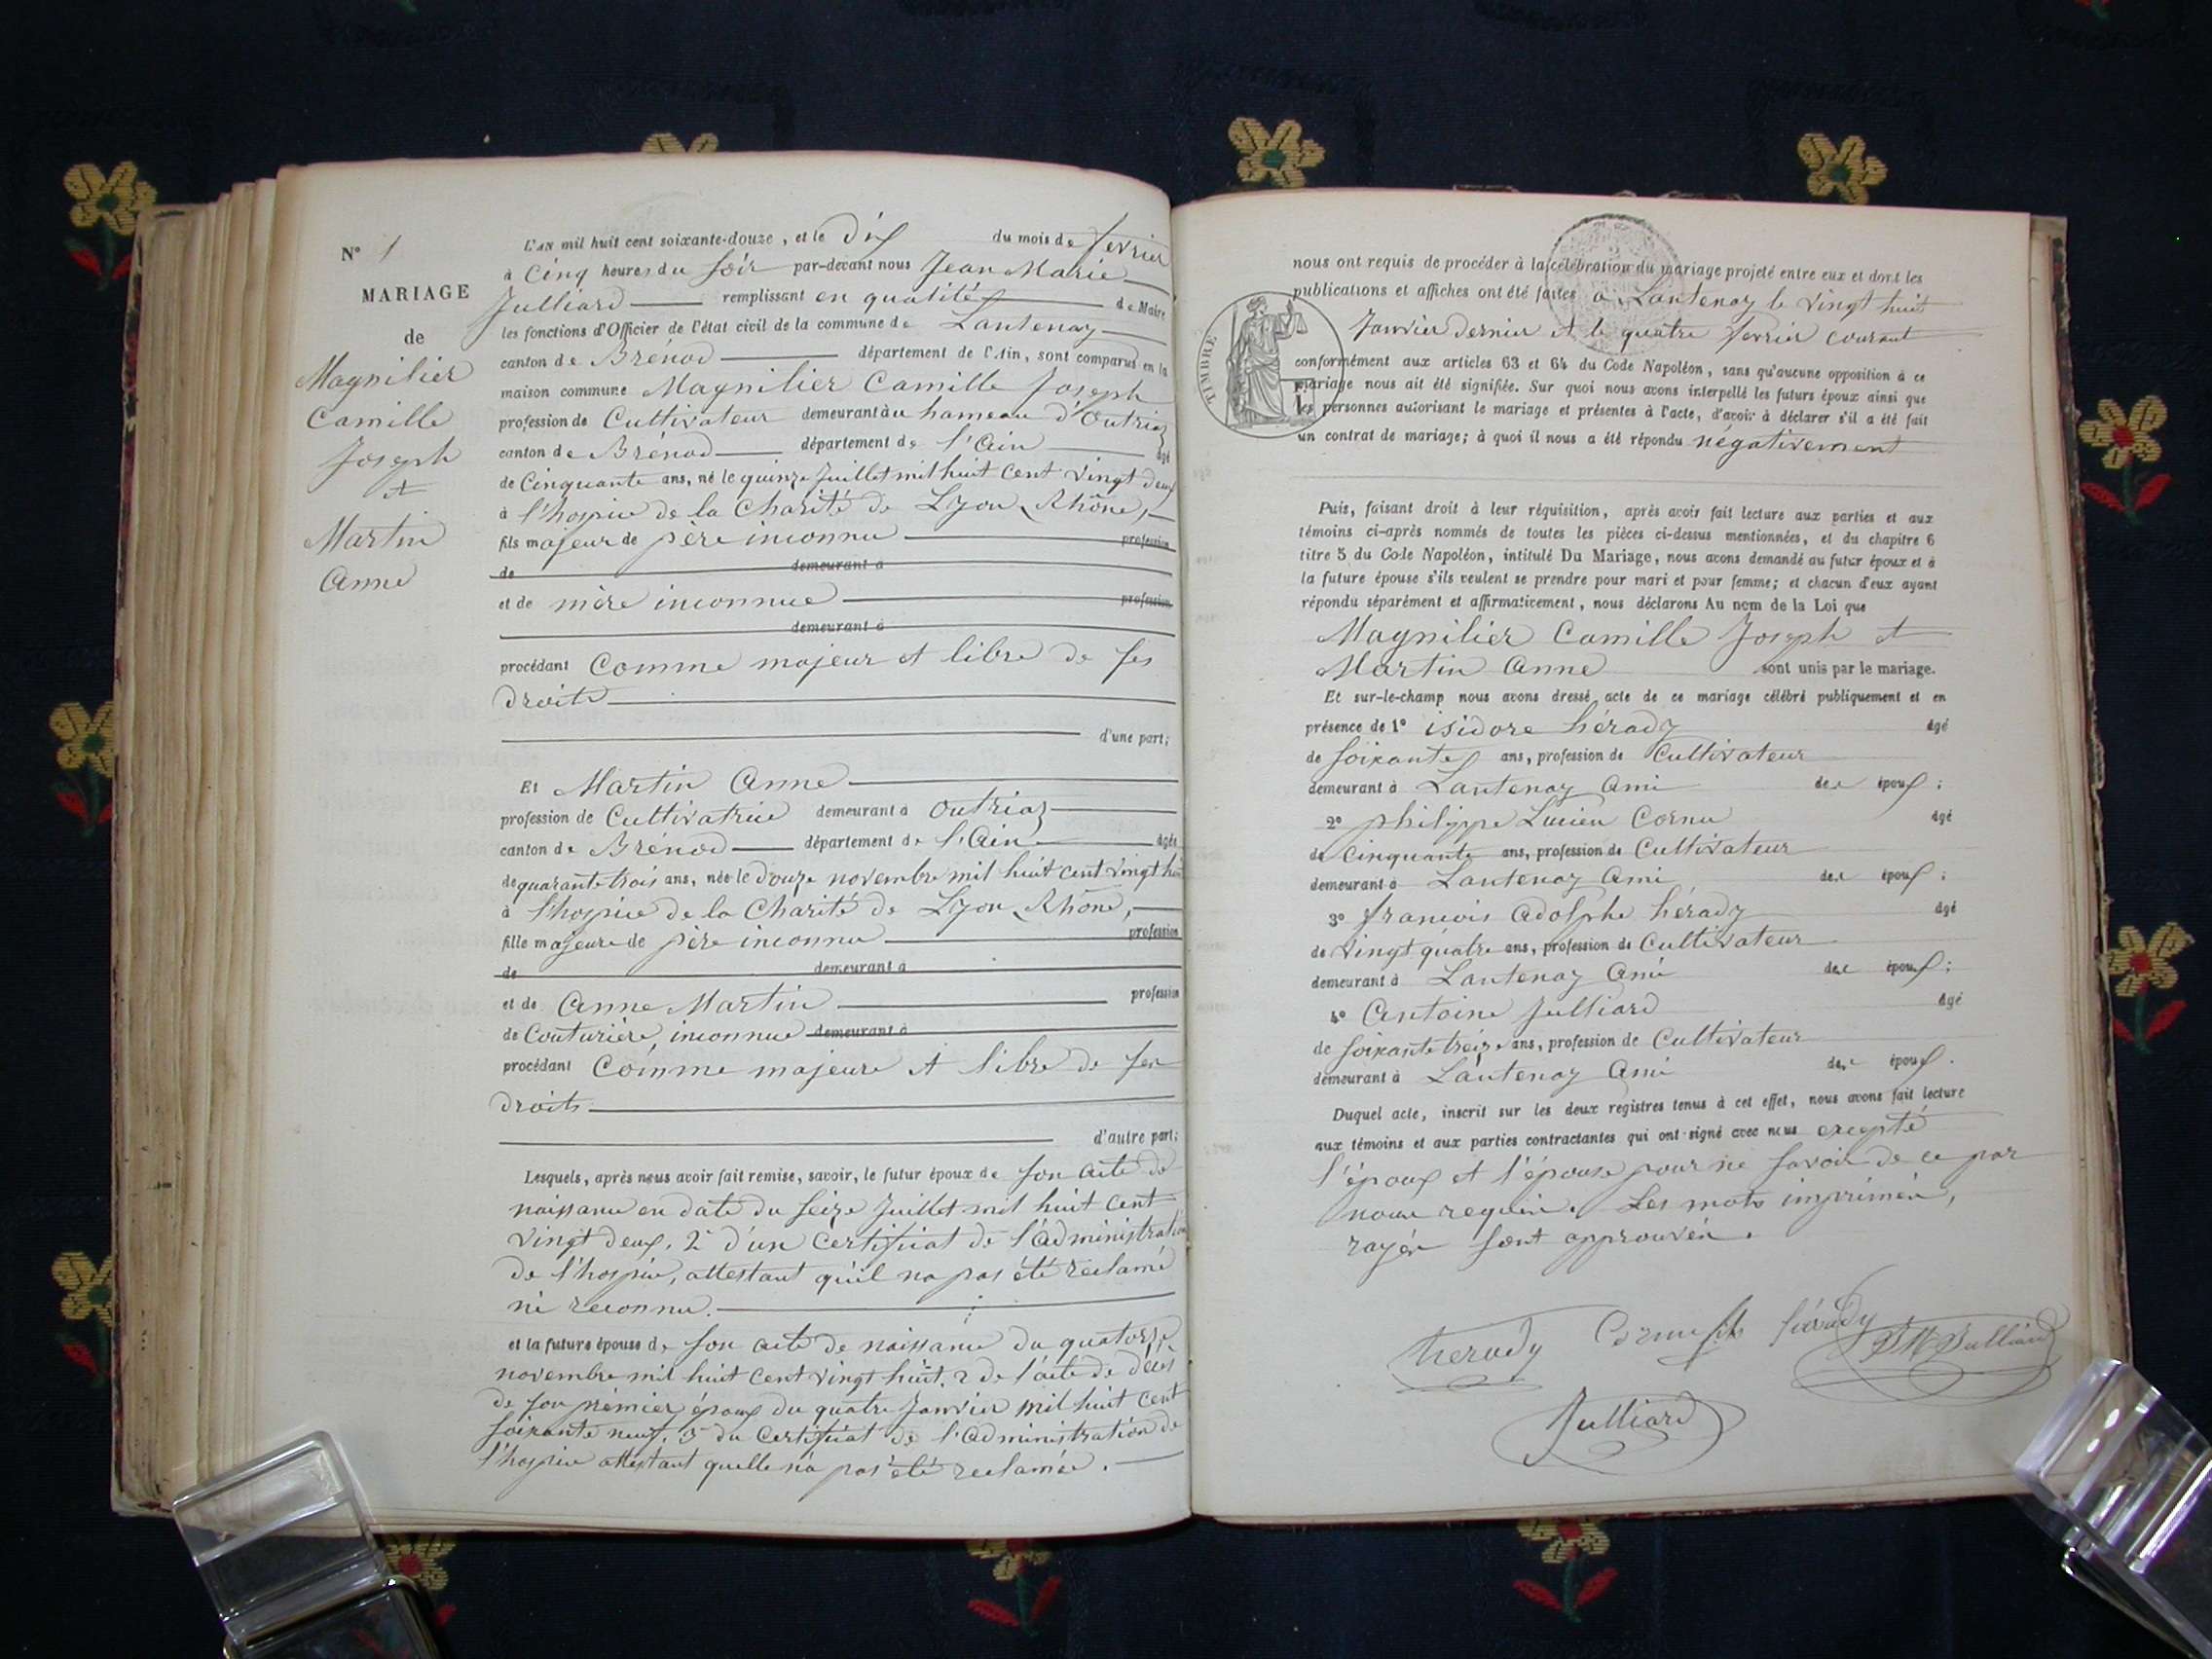 N° 1
MARIAGE
de
Magnilier
Camille
Joseph
et
Martin
Anne
L'AN mil huit cent soixante-douze, et le dix du mois de fevrier
à Cinq heures du soir par-devant nous Jean Marie
Julliard remplissant en qualité de Maire
les fonctions d'Officier de l'état civil de la commune de Lantenay
canton de Brénod département de l'Ain, sont comparus en la
maison commune Magnilier Camille Joseph
profession de Cultivateur demeurant à au hameau d'Outriaz
canton de Brénod département de l'Ain âgé
de Cinquante ans, né le quinze Juillet mil huit cent vingt deux
à l'hospice de la Charité de Lyon, Rhône,
fils majeur de père inconnu profession
de demeurant à
et de mère inconnue profession
demeurant à
procédant Comme majeur et libre de ses
droits
d'une part;
Et Martin Anne
profession de Cultivatrice demeurant à Outriaz
canton de Brénod département de l'Ain âgée
de quarante trois ans, née le douze novembre mil huit cent vingt huit
à l'hospice de la Charité de Lyon, Rhône,
fille majeure de père inconnu profession
de demeurant à
et de Anne Martin profession
de Couturière, inconnue demeurant à
procédant Comme majeure et libre de ses
droits
d'autre part;
Lesquels, après nous avoir fait remise, savoir, le futur époux de son acte de
naissance en date du seize Juillet mil huit cent
vingt deux, 2° d'un certificat de l'administration
de l'hospice, attestant qu'il na pas été réclamé
ni reconnu.
et la future épouse de son acte de naissance du quatorze
novembre mil huit cent vingt huit. 2 de l'acte de décès
de son prémier époux du quatre Janvier mil huit cent
soixante neuf, 3° du Certificat de l'administration de
l'hospice attestant quelle n'a pas été reclamée.
nous ont requis de procéder à la célébration du mariage projeté entre eux et dont les
publications et affiches ont été faites a Lantenay le vingt huit
Janvier dernier et le quatre fevrier courant
TIMBRE
conformément aux articles 63 et 64 du Code Napoléon, sans qu'aucune opposition à ce
mariage nous ait été signifiée. Sur quoi nous avons interpellé les futurs époux ainsi que
les personnes autorisant le mariage et présentes à l'acte, d'avoir à déclarer s'il a été fait
un contrat de mariage; à quoi il nous a été répondu négativement
Puis, faisant droit à leur réquisition, après avoir fait lecture aux parties et aux
témoins ci-après nommés de toutes les pièces ci-dessus mentionnées, et du chapitre 6
titre 5 du Code Napoléon, intitulé Du Mariage, nous avons demandé au futur époux et à
la future épouse s'ils veulent se prendre pour mari et pour femme; et chacun d'eux ayant
répondu séparément et affirmativement, nous déclarons Au nom de la Loi que
Magnilier Camille Joseph et
Martin Anne sont unis par le mariage.
Et sur-le-champ nous avons dressé acte de ce mariage célébré publiquement et en
présence de 1° isidore hérady âgé
de soixante ans, profession de Cultivateur
demeurant à Lantenay Ami des époux;
2° philippe Lucien Cornu âgé
de Cinquante ans, profession de Cultivateur
demeurant à Lantenay Ami des époux;
3° francois Adolphe hérady âgé
de Vingt quatre ans, profession de Cultivateur
demeurant à Lantenay Ami des époux;
4° Antoine Julliard âgé
de soixante treize ans, profession de Cultivateur
demeurant à Lantenay Ami des époux.
Duquel acte, inscrit sur les deux registres tenus à cet effet, nous avons fait lecture
aux témoins et aux parties contractantes qui ont signé avec nous excepté
l'époux et l'épouse pour ne savoir de ce par
nous requis. Les mots imprimés,
rayés sont approuvés.
herady Cornu fils hérady JM Julliard
Julliard